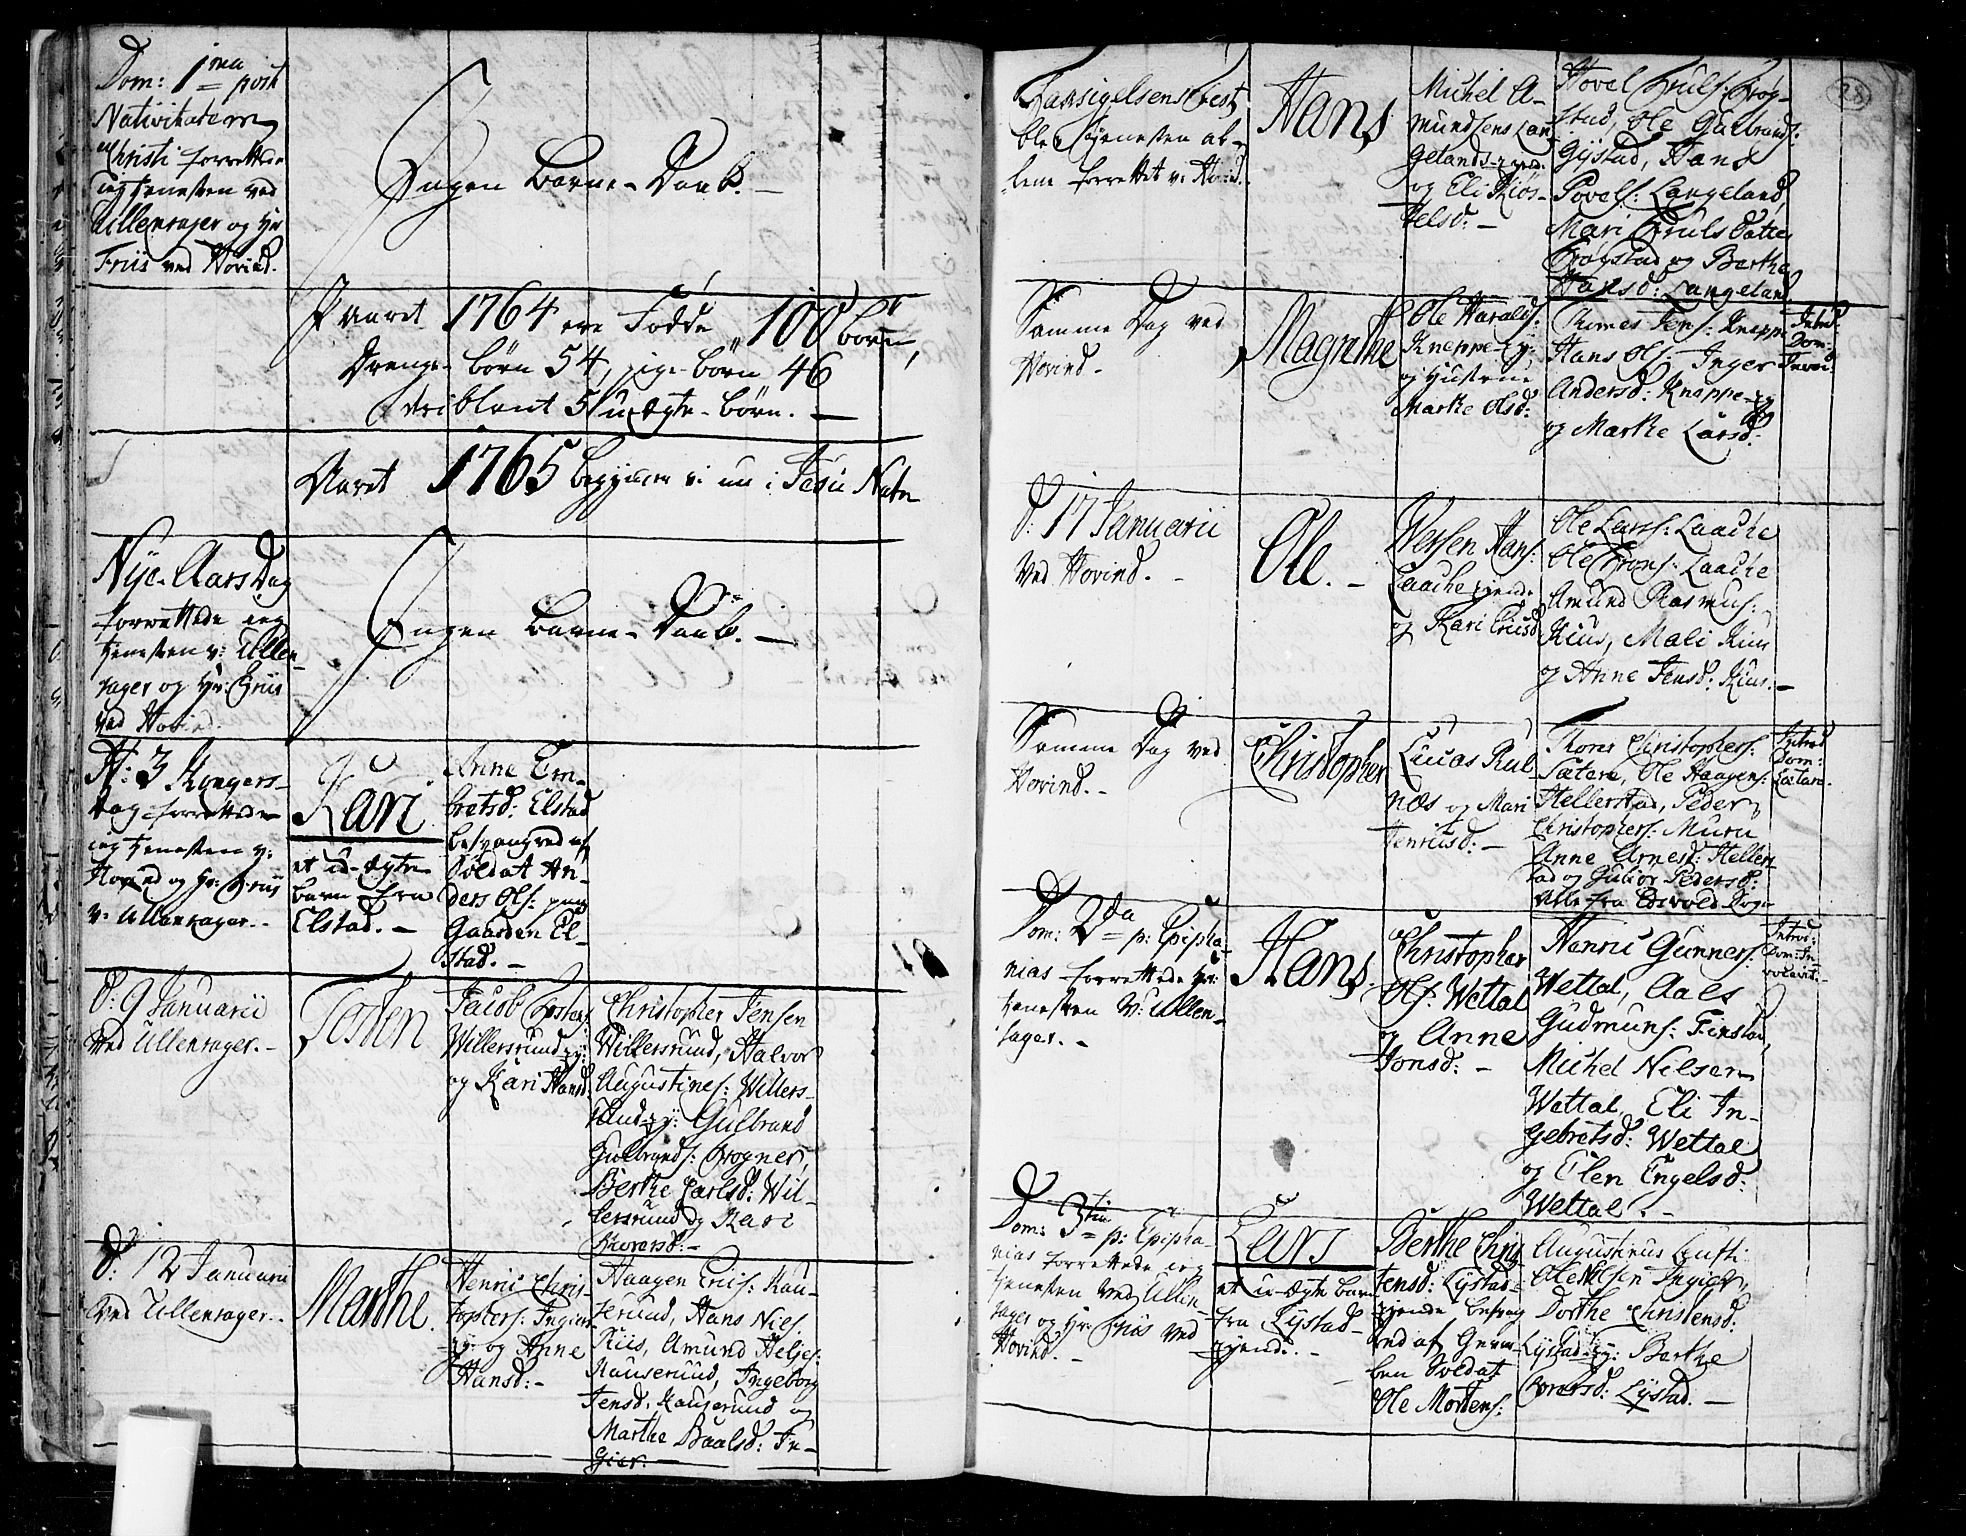 Dom: 1ma post
Nativitatem
Christi forrettede
ieg tienesten ved
Ullensager og Hr
Friis ved Hovind.
Ingen Barne-Daab. –
I Aaret 1764 ere Fødde 100 børn,
Drenge-børn 54, pige-børn 46
deriblant 5 uægte-børn. –
Aaret 1765 begynder vi nu i Jesu Nafn
Nye-Aars Dag
forrettede ieg
tienesten v: Ullen-
sager og Hr: Friis
ved Hovind.
Ingen Barne-Daab. –
H: 3 Kongers-
Dag forrettede
ieg tienesten v:
Hovind og Hr: Friis
v: Ullensager. -
Kari
et u-ægte
barn fra
Elstad. –
Anne Em-
bretsd: Elstad
besvangred af
Soldat An-
ders Ols: paa
Gaarden El-
stad. –
d: 9 Januarii
ved Ullensager. –
Tosten
Jacob Tostens:
Willersrund-ey:
og Kari Hansd:
Christopher Jensen
Willersrund, Halvor
Augustines: Willers-
rund-ey: Gulbrand
Gulbrands: Frogner,
Berthe Carlsd: Wil-
lersrund og Kari
d: 12 Januarii
ved Ullensager. -
Marthe.
Henric Chris-
tophers: Ingier-
ey: og Anne
Hansd: -
Haagen Erics: Kau-
serund, Hans Niels:
Riis, Amund Heljes:
Kauserund, Ingeborg
Jensd: Kauserund og
Marthe Paalsd: In-
gier. –
28
Taksigelsens Fest
blev tienesten al-
lene forrettet v: Hovind.
Hans
Michel A-
mundsens Lan-
gelands-eyed.
og Eli Kiøs-
telsd: –
Povel Truls: Frog-
stad, Ole Gulbrands:
Gystad, Hans
Povels: Langeland,
Mari Truls Datter
Frogstad og Berthe
Hansd: Langeland.
Samme Dag ved
Hovind. -
Magrethe
Ole Haralds:
Knappe-ey:
og Hustrue
Marthe Olsd:
Thomes Jens: Knappe
Hans Ols: Inger
Andersd: Knappe-ey
og Marthe Larsd:
Introd:
Dom:
Invoc:
d: 17 Januarii
ved Hovind. -
Ole. –
Wessen Hans:
Laache-eyende
og Kari Ericsd
Ole Lars: Laache
Ole Trons: Laache
Amund Rasmus:
Kius, Mali Kius
og Anne Jensd: Kius. –
Samme Dag ved
Hovind. -
Christopher
Lucas Kul-
næs og Mari
Henricsd: –
Thorer Christophers:
Sætere, Ole Haagens:
Hellerstad, Peder
Christophers: Muru
Anne Arnesd: Hellers-
tad og Pedersd:
alle fra Edsvold Sogn
Introd
Dom:
Lætare.
Dom: 2da p: Epipha-
nias forrettede Hr:
tienesten v: Ullen-
sager. -
Hans.
Christopher
Ols: Wettal
og Anne
Jonsd: –
Henric Gunners:
Wettal, Aales
Gudmuns: Finstad,
Michel Nilsen
Wettal, Eli In-
gebretsd: Wettal
og Elen Engelsd:
Wettal. –
Introd:
Dom: In-
vocavit.
Dom: 3tia p: Epipha-
nias forrettede ieg
tienesten ved Ullen-
sager og Hr: Friis ved
Hovind. -
Lars
et u-ægte barn
fra Lystad-
eyende. –
Berthe Chris-
tensd: Lystad-
eyende besvang-
red af Gevor-
ben Soldat
Ole Mortens:
Augustinus
Ole Nilsen Ingier,
Dorthe Christensd:
Lystad-ey: Berthe
Lystad. –